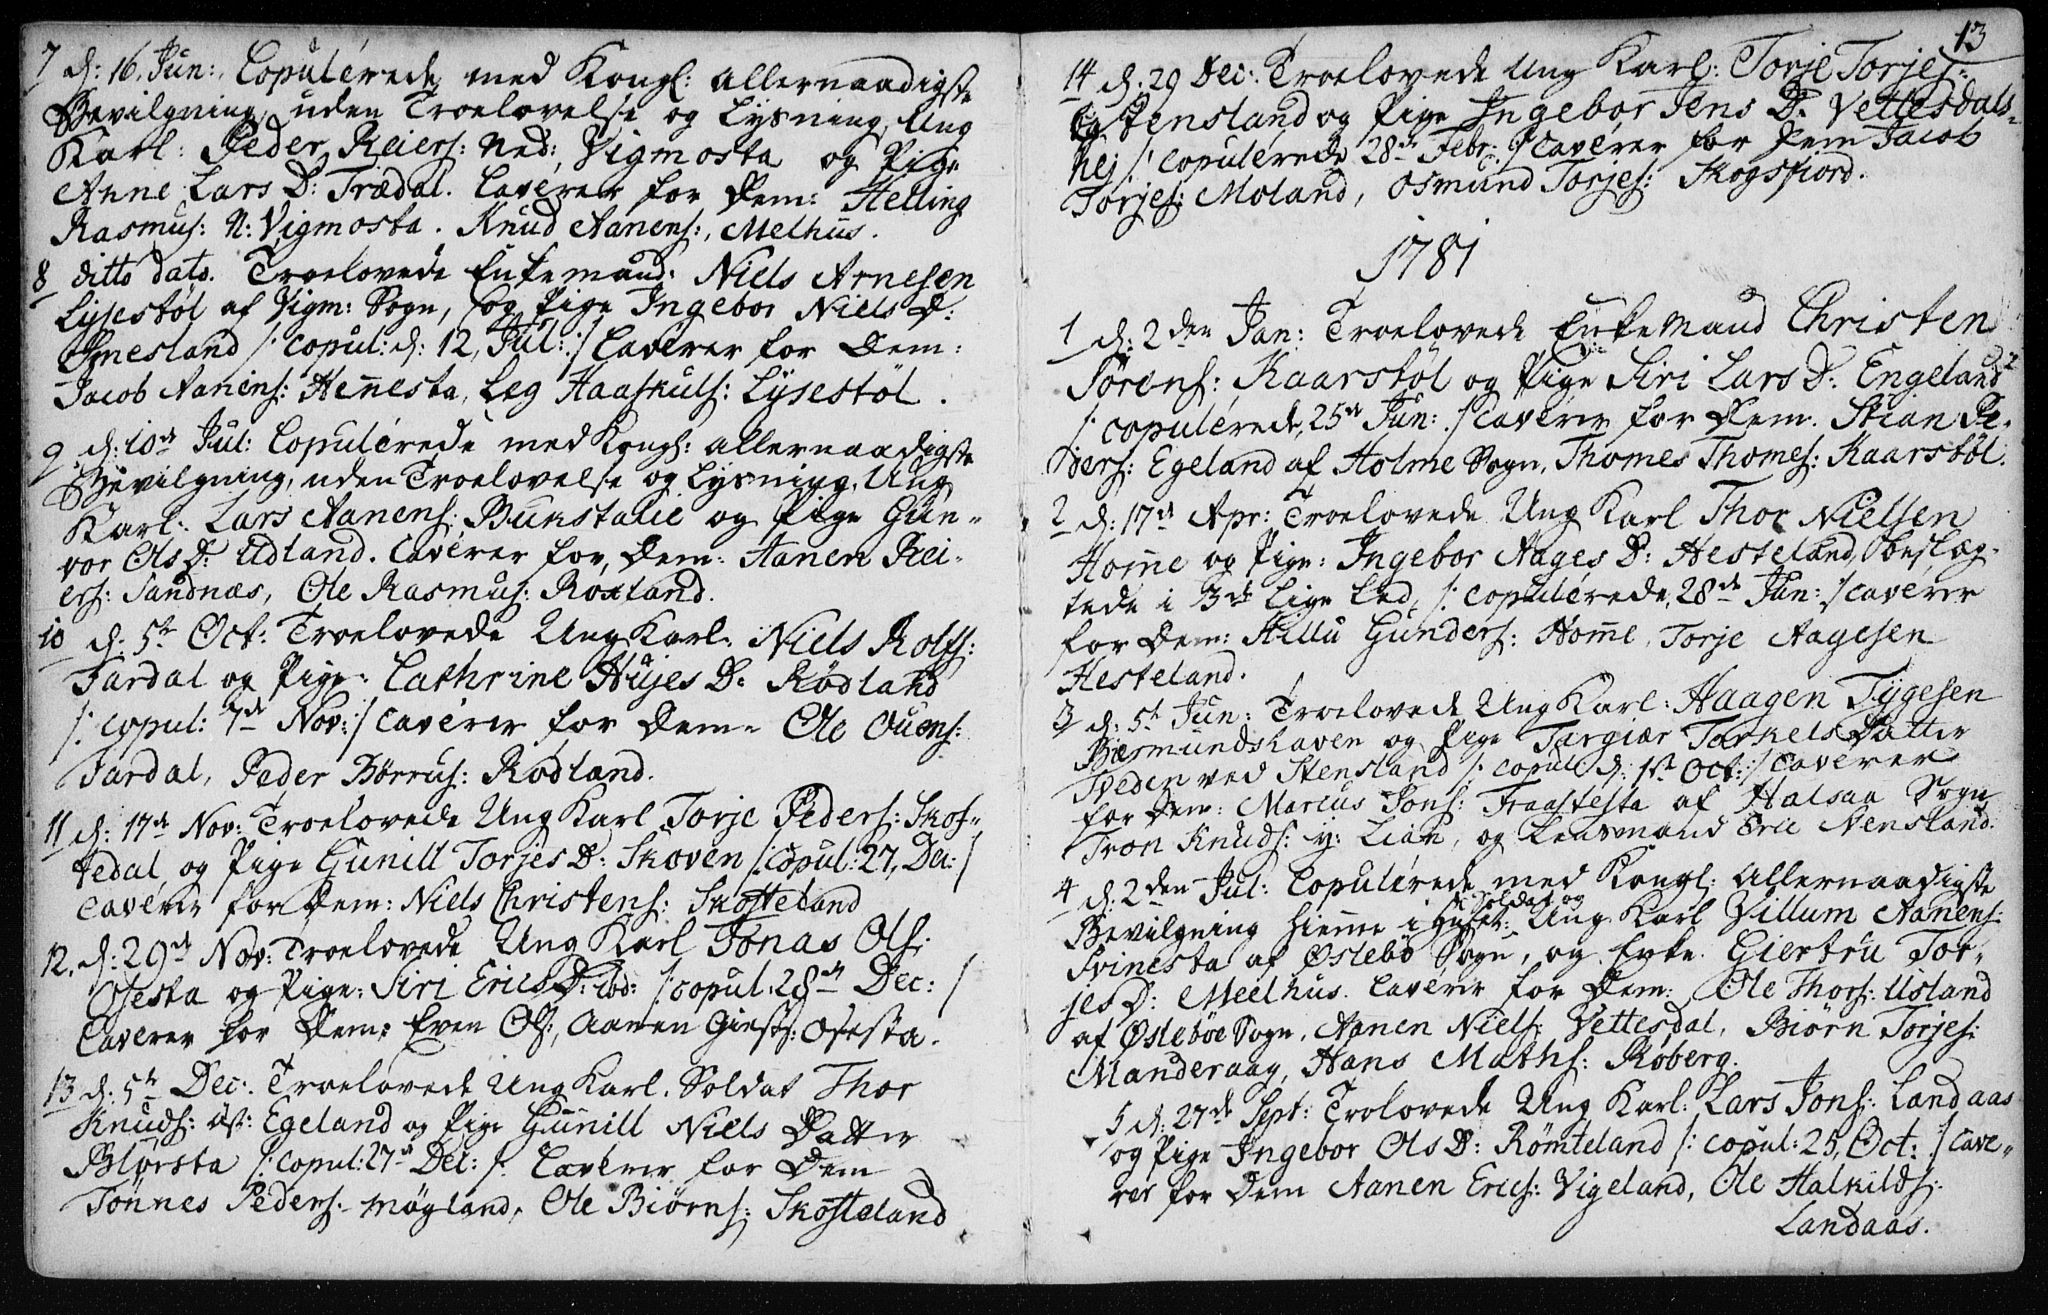 7 d: 16. Jun: Copulerede med Kongl: allernaadigste
Bevilgning, uden Troelovelse og Lysning, Ung
Karl: Peder Reiers: Ned: Vigmosta og Pige
Anne Lars D: Trædal. Caverer for Dem: Helling
Rasmus: N: Vigmosta. Knud Aanens:, Melhus.
8 ditto dato. Troelovede Enkemand: Niels Arnesen
Lysestøl af Vigm: Sogn, og Pige Ingebor Niels D:
Omesland /: copul: d: 12, Jul: :/ Caverer for Dem:
Jacob Aanens: Hennesta, Leg Haaskuls: Lysestøl.
9 d: 10de Jul: Copulerede med Kongl: allernaadigste
Bevilgning, uden Troelovelse og Lysning, Ung
Karl: Lars Aanens: Bukstalie og Pige Gun-
vor Ols D: Udland. Caverer for Dem: Aanen Rei-
ers: Sandnæs, Ole Rasmus: Roxland.
10 d: 5te Oct: Troelovede Ung Karl: Niels Rolfs:
Fardal og Pige: Cathrine Aujes D: Rødland
/: copul: 7de Nov: :/ caverer for Dem: Ole Ouens:
Fardal, Peder Børrus: Rødland.
11 d: 17de Nov: Troelovede Ung Karl Torje Peders: Skof-
tedal og Pige Gunill Torjes D: Skoven /: copul: 27, Dec: /
Caverer for Dem: Niels Christens: Skofteland
12. d: 29de Nov: Troelovede Ung Karl Jonas Ols:
Osesta og Pige: Siri Erics D: ibd: /: copul: 28de Dec: /
Caverer for Dem: Even Ols:, Aanen Giests: Osesta.
13 d: 5te Dec: Troelovede Ung Karl. Soldat Thor
Knuds: Øst: Egeland og Pige Gunill Niels Datter
Blørsta /: copul: 27de Dec: /: Caverer for Dem
Tønnes Peders: Møgland, Ole Biørns: Skofteland
13
14 d: 29 Dec: Troelovede Ung Karl: Torje Torjes:
Stensland og Pige Ingebor Jens D: Vettesdals-
hej /: copulerede 28de Febr: :/ Caverer for Dem Jacob
Torjes: Moland, Osmund Torjes: Skogsfiord.
1781
1 d: 2den Jan: Troelovede Enkemand Christen
Sørens: Kaarstøl og Pige Siri Lars D: Engeland
/: copulerede, 25de Jun: :/ Caverer for Dem. Stian Pe-
ders: Egeland af Holme Sogn, Thomes Thomes: Kaarstøl.
2 d: 17de Apr: Troelovede Ung Karl Thor Nielsen
Homme og Pige: Ingebor Aages D: Hesteland, Beslæg-
tede i 3de Lige Led, /: copulerede, 28de Jun: :/ Caverer
for Dem: Stillu Gunders: Homme, Torje Aagesen
Hesteland.
3 d: 5te Jun: Troelovede Ung Karl: Haagen Tygesen
Besmundshaven og Pige Targiær Torkels Datter
Sveden ved Stensland /: copul d: 1ste Oct: :/ Caverer
for Dem: Marcus Jons: Fraastesta af Halsaa Sogn
Tron Knuds: y: Lian, og Lensmand Eric Nensland.
4 d: 2den Jul: Copulerede med Kongl: Allernaadigste
Bevilgning hjemme i Huset: Soldat og Ung Karl Villum Aanens:
Svinesta af Øslebø Sogn, og Enke Giertru Tor-
jes D: Meelhus. Caverer for Dem: Ole Thors: Usland
af Øslebøe Sogn, Aanen Niels: Vettesdal, Biørn Torjes:
Manderaag, Hans Maths: Røberg.
5 d: 27de Sept: Trolovede Ung Karl: Lars Jons: Landaas
og Pige Ingebor Ols D: Rømteland /: copul: 25, Oct: :/ Cave-
rer for Dem Aanen Erics: Vigeland, Ole Halkilds:
Landaas.